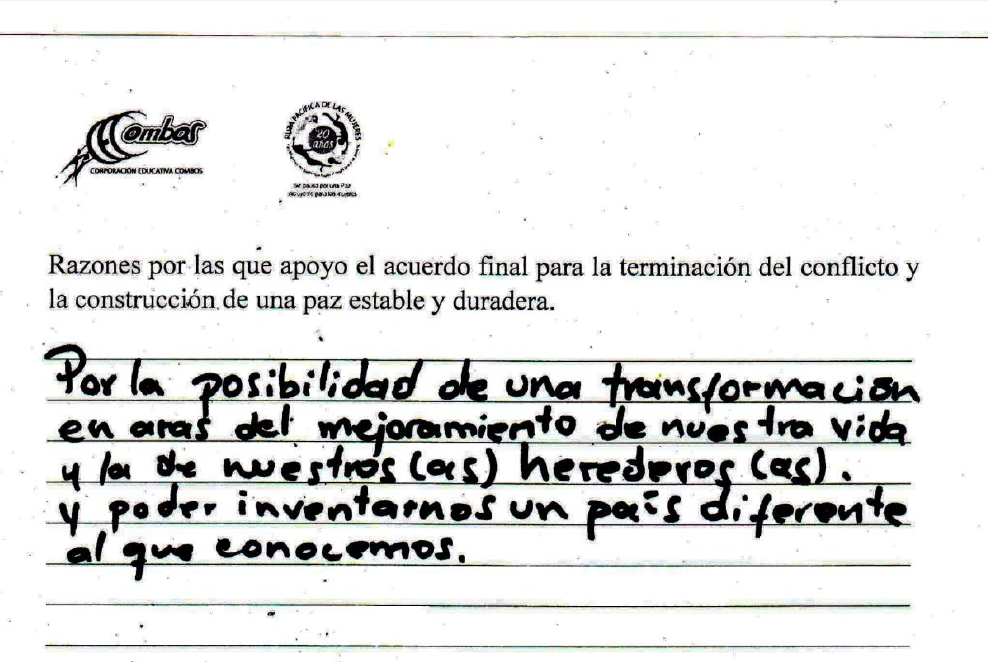 Combos
CORPORACIÓN EDUCATIVA COMBOS
RUTA PACÍFICA DE LAS MUJERES
20
años
Razones por las que apoyo el acuerdo final para la terminación del conflicto y
la construcción de una paz estable y duradera.
Por la posibilidad de una transformación
en aras del mejoramiento de nuestra vida
y la de nuestros (as) herederos (as).
y poder inventarnos un país diferente
al que conocemos.